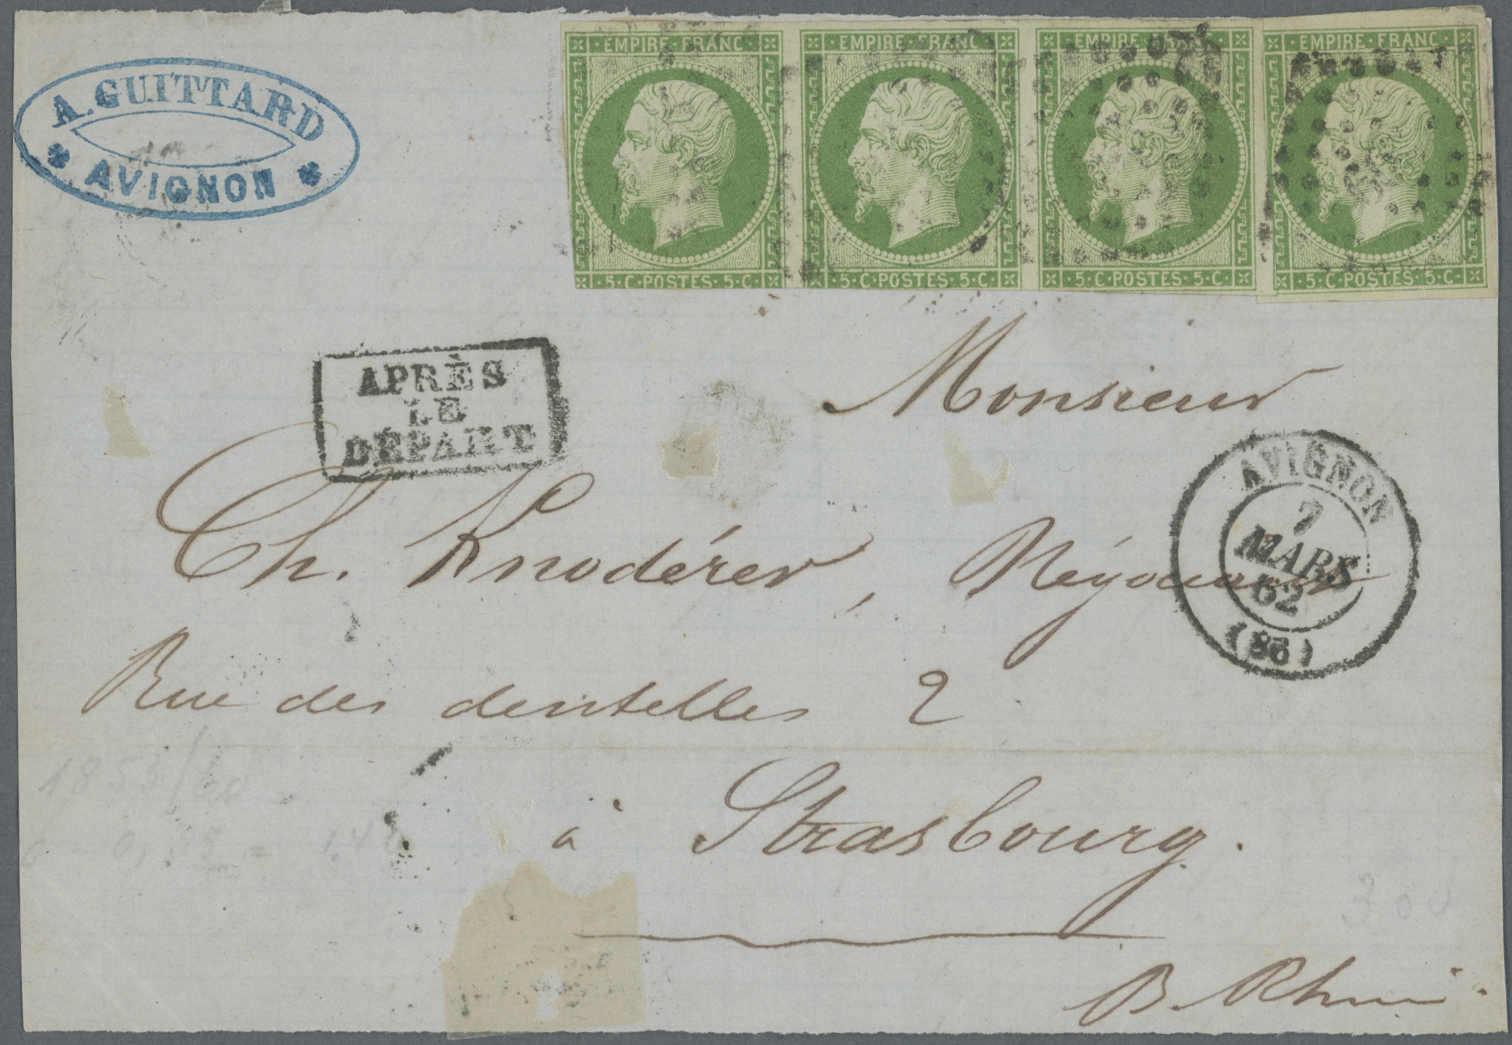 A. GUITTARD
AVIGNON
EMPIRE FRANC
5 · C · POSTES · 5 · C
EMPIRE · FRANC
5 · C · POSTES · 5 · C
EMPIRE · FRANC
5 · C · POSTES · 5 · C
EMPIRE · FRANC
5 · C · POSTES · 5 · C
APRÈS
LE
DÉPART
Monsieur
AVIGNON
7
MARS
62
(86)
Ch. Knodérer, Négociant
Rue des dentelles 2
à Strasbourg.
B. Rhin
1853/60
300